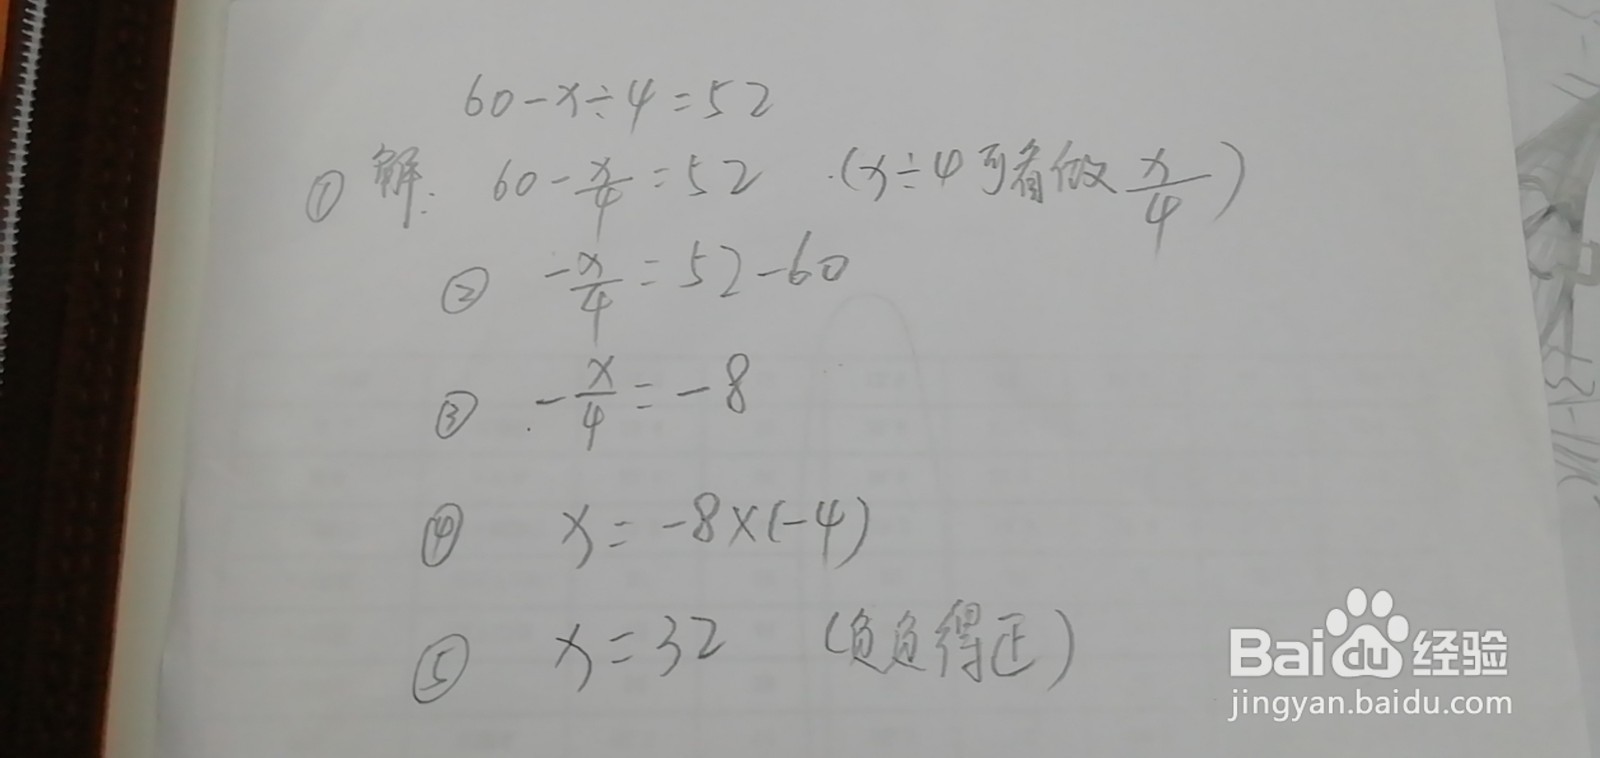 60-x÷4=52
① 解. 60-x/4=52 (x÷4可看做x/4)
② -x/4=52-60
③ -x/4=-8
④ x=-8×(-4)
⑤ x=32 (负负得正)
Baidu经验
jingyan.baidu.com